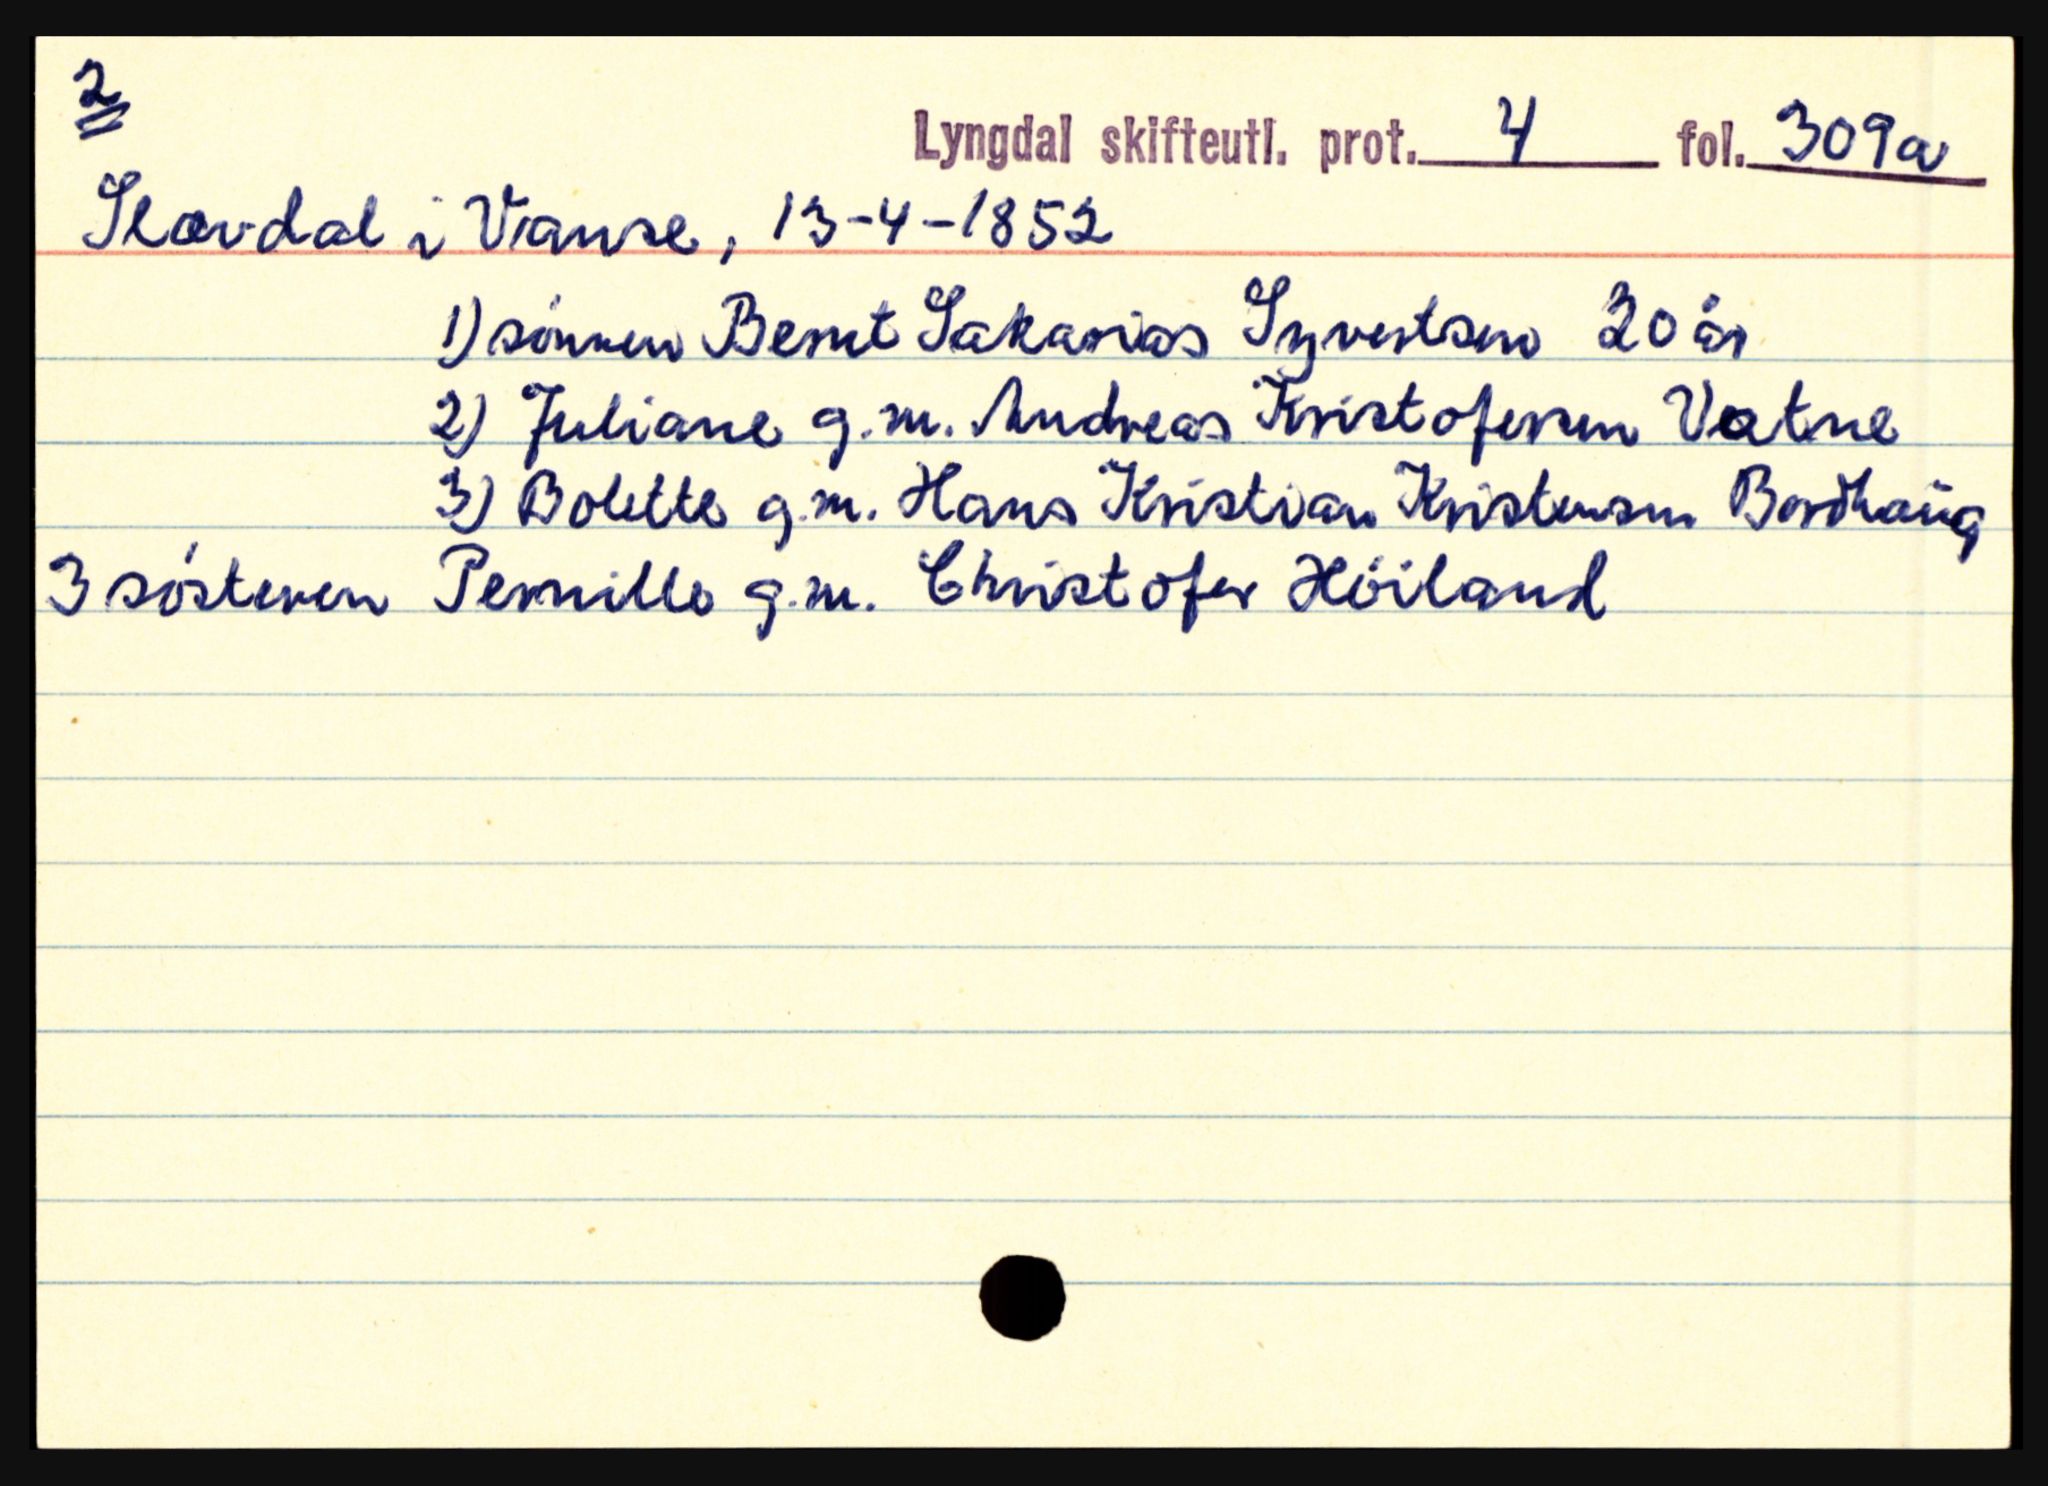 2
Lyngdal skifteutl. prot. 4 fol. 309a
Slevdal i Vanse, 13-4-1852
1) sönnen Bernt Sakarias Syvertsen 20 år
2) Juliane g.m. Andreas Kristofersen Vatne
3) Bolette g.m. Hans Kristian Kristensen Bordhaug
3 sösteren Pernille g.m. Christofer Höiland